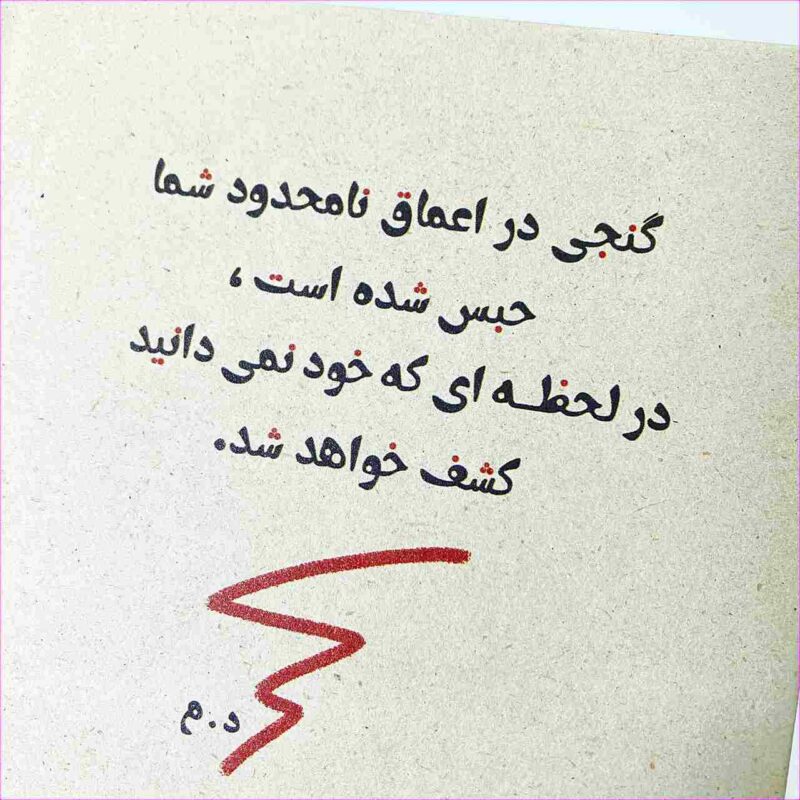 گنجی در اعماق نامحدود شما
حبس شده است ،
در لحظه ای که خود نمی دانید
کشف خواهد شد.
د.م